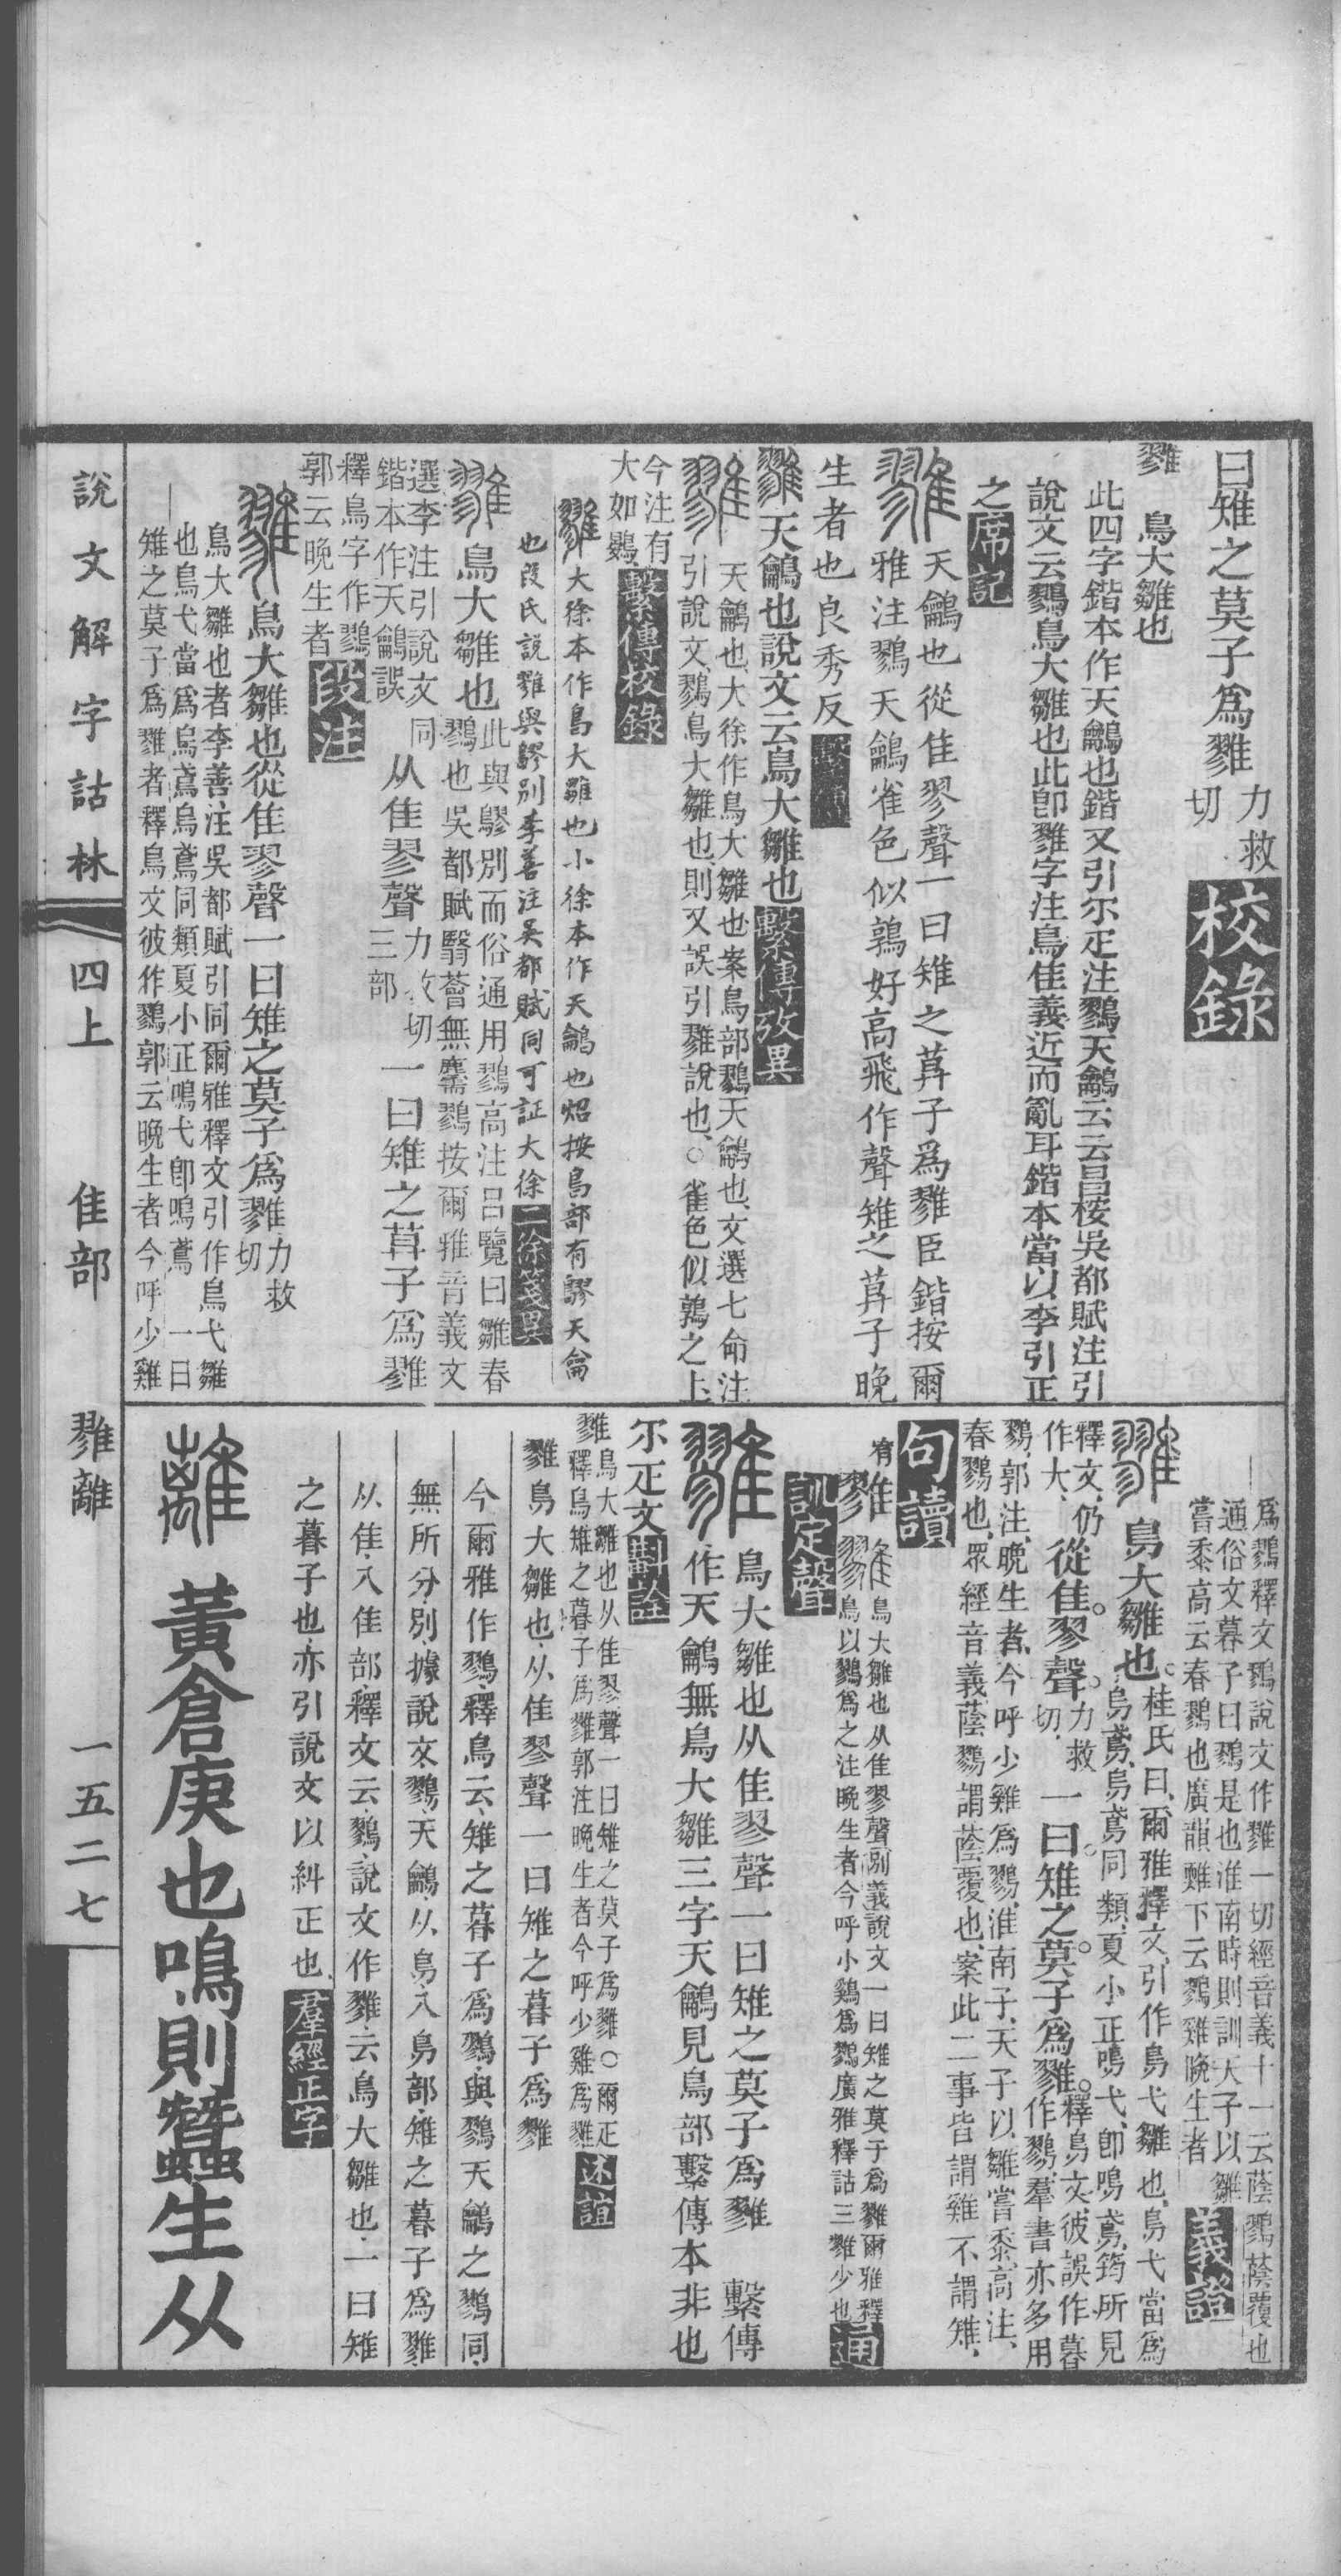 曰雉之莫子爲雡力救切校錄
雡鳥大雛也
此四字鍇本作天鸙也鍇又引尔疋注鷚天鸙云云昌桉吳都賦注引
說文云鷚鳥大雛也此卽雡字注鳥隹義近而亂耳鍇本當以李引正
之席記
雡天鸙也從隹翏聲一曰雉之莫子爲雡臣鍇按爾
雅注鷚天鸙雀色似鶉好高飛作聲雉之莫子晚
生者也良秀反繫傳
雡天鸙也說文云鳥大雛也繫傳攷異
雡天鸙也、大徐作鳥大雛也案鳥部鷚天鸙也、文選七命注
引說文、鷚鳥大雛也、則又誤引雡說也、○雀色似鶉之上
今注有
大如鷃、繫傳校錄
雡大徐本作鳥大雛也小徐本作天鸙也炤按鳥部有鷚天龠
也段氏說雡與鷚別李善注吳都賦同可証大徐二徐箋異
雡鳥大雛也此與鷚別而俗通用鷚高注呂覽曰雛春
鷚也吳都賦翳薈無麡鷚按爾雅音義文
選李注引說文同
鍇本作天鸙誤从隹翏聲力救切三部一曰雉之莫子爲雡
釋鳥字作鷚
郭云晚生者段注
雡鳥大雛也從隹翏聲一曰雉之莫子爲雡力救切
鳥大雛也者李善注吳都賦引同爾雅釋文引作鳥弋雛
也鳥弋當爲烏鳶烏鳶同類夏小正鳴弋卽鳴鳶 一曰
雉之莫子爲雡者釋鳥文彼作鷚郭云晚生者今呼少雞
爲鷚釋文鷚說文作雡一切經音義十一云蔭鷚蔭覆也
通俗文暮子曰鷚是也淮南時則訓天子以雛
嘗黍高云春鷚也廣韻雡下云鷚雞晚生者義證
雡鳥大雛也。桂氏曰、爾雅釋文、引作鳥弋雛也、鳥弋當爲
烏鳶、烏鳶同類、夏小正鳴弋、卽鳴鳶、筠所見
釋文、仍
作大、從隹。翏聲。力救切、一曰雉之。莫子爲雡。釋鳥文、彼誤作暮
作鷚、羣書亦多用
鷚、郭注、晚生者、今呼少雞爲鷚、淮南子、天子以雛嘗黍、高注、
春鷚也、眾經音義、蔭鷚謂蔭覆也、案此二事皆謂雞不謂雉、
句讀
宥雡雡鳥大雛也从隹翏聲別義說文一曰雉之莫子爲雡爾雅釋
鳥以鷚爲之注晚生者今呼少雞爲鷚廣雅釋詁三雡少也通
訓定聲
雡鳥大雛也从隹翏聲一曰雉之莫子爲雡 繫傳
作天鸙無鳥大雛三字天鸙見鳥部繫傳本非也
尔疋文斠詮
雡鳥大雛也从隹翏聲一曰雉之莫子爲雡○爾疋
釋鳥雉之暮子爲雡郭注晚生者今呼少雞爲雡述誼
雡鳥大雛也、从隹翏聲一曰雉之暮子爲雡
今爾雅作鷚、釋鳥云、雉之暮子爲鷚、與鷚天鸙之鷚同、
無所分別、據說文、鷚、天鸙从鳥、入鳥部、雉之暮子爲雡、
从隹、入隹部、釋文云、鷚、說文作雡、云鳥大雛也、一曰雉
之暮子也、亦引說文以糾正也、羣經正字
離黃倉庚也鳴則蠶生从
說文解字詁林 四上 隹部 雡離 一五二七